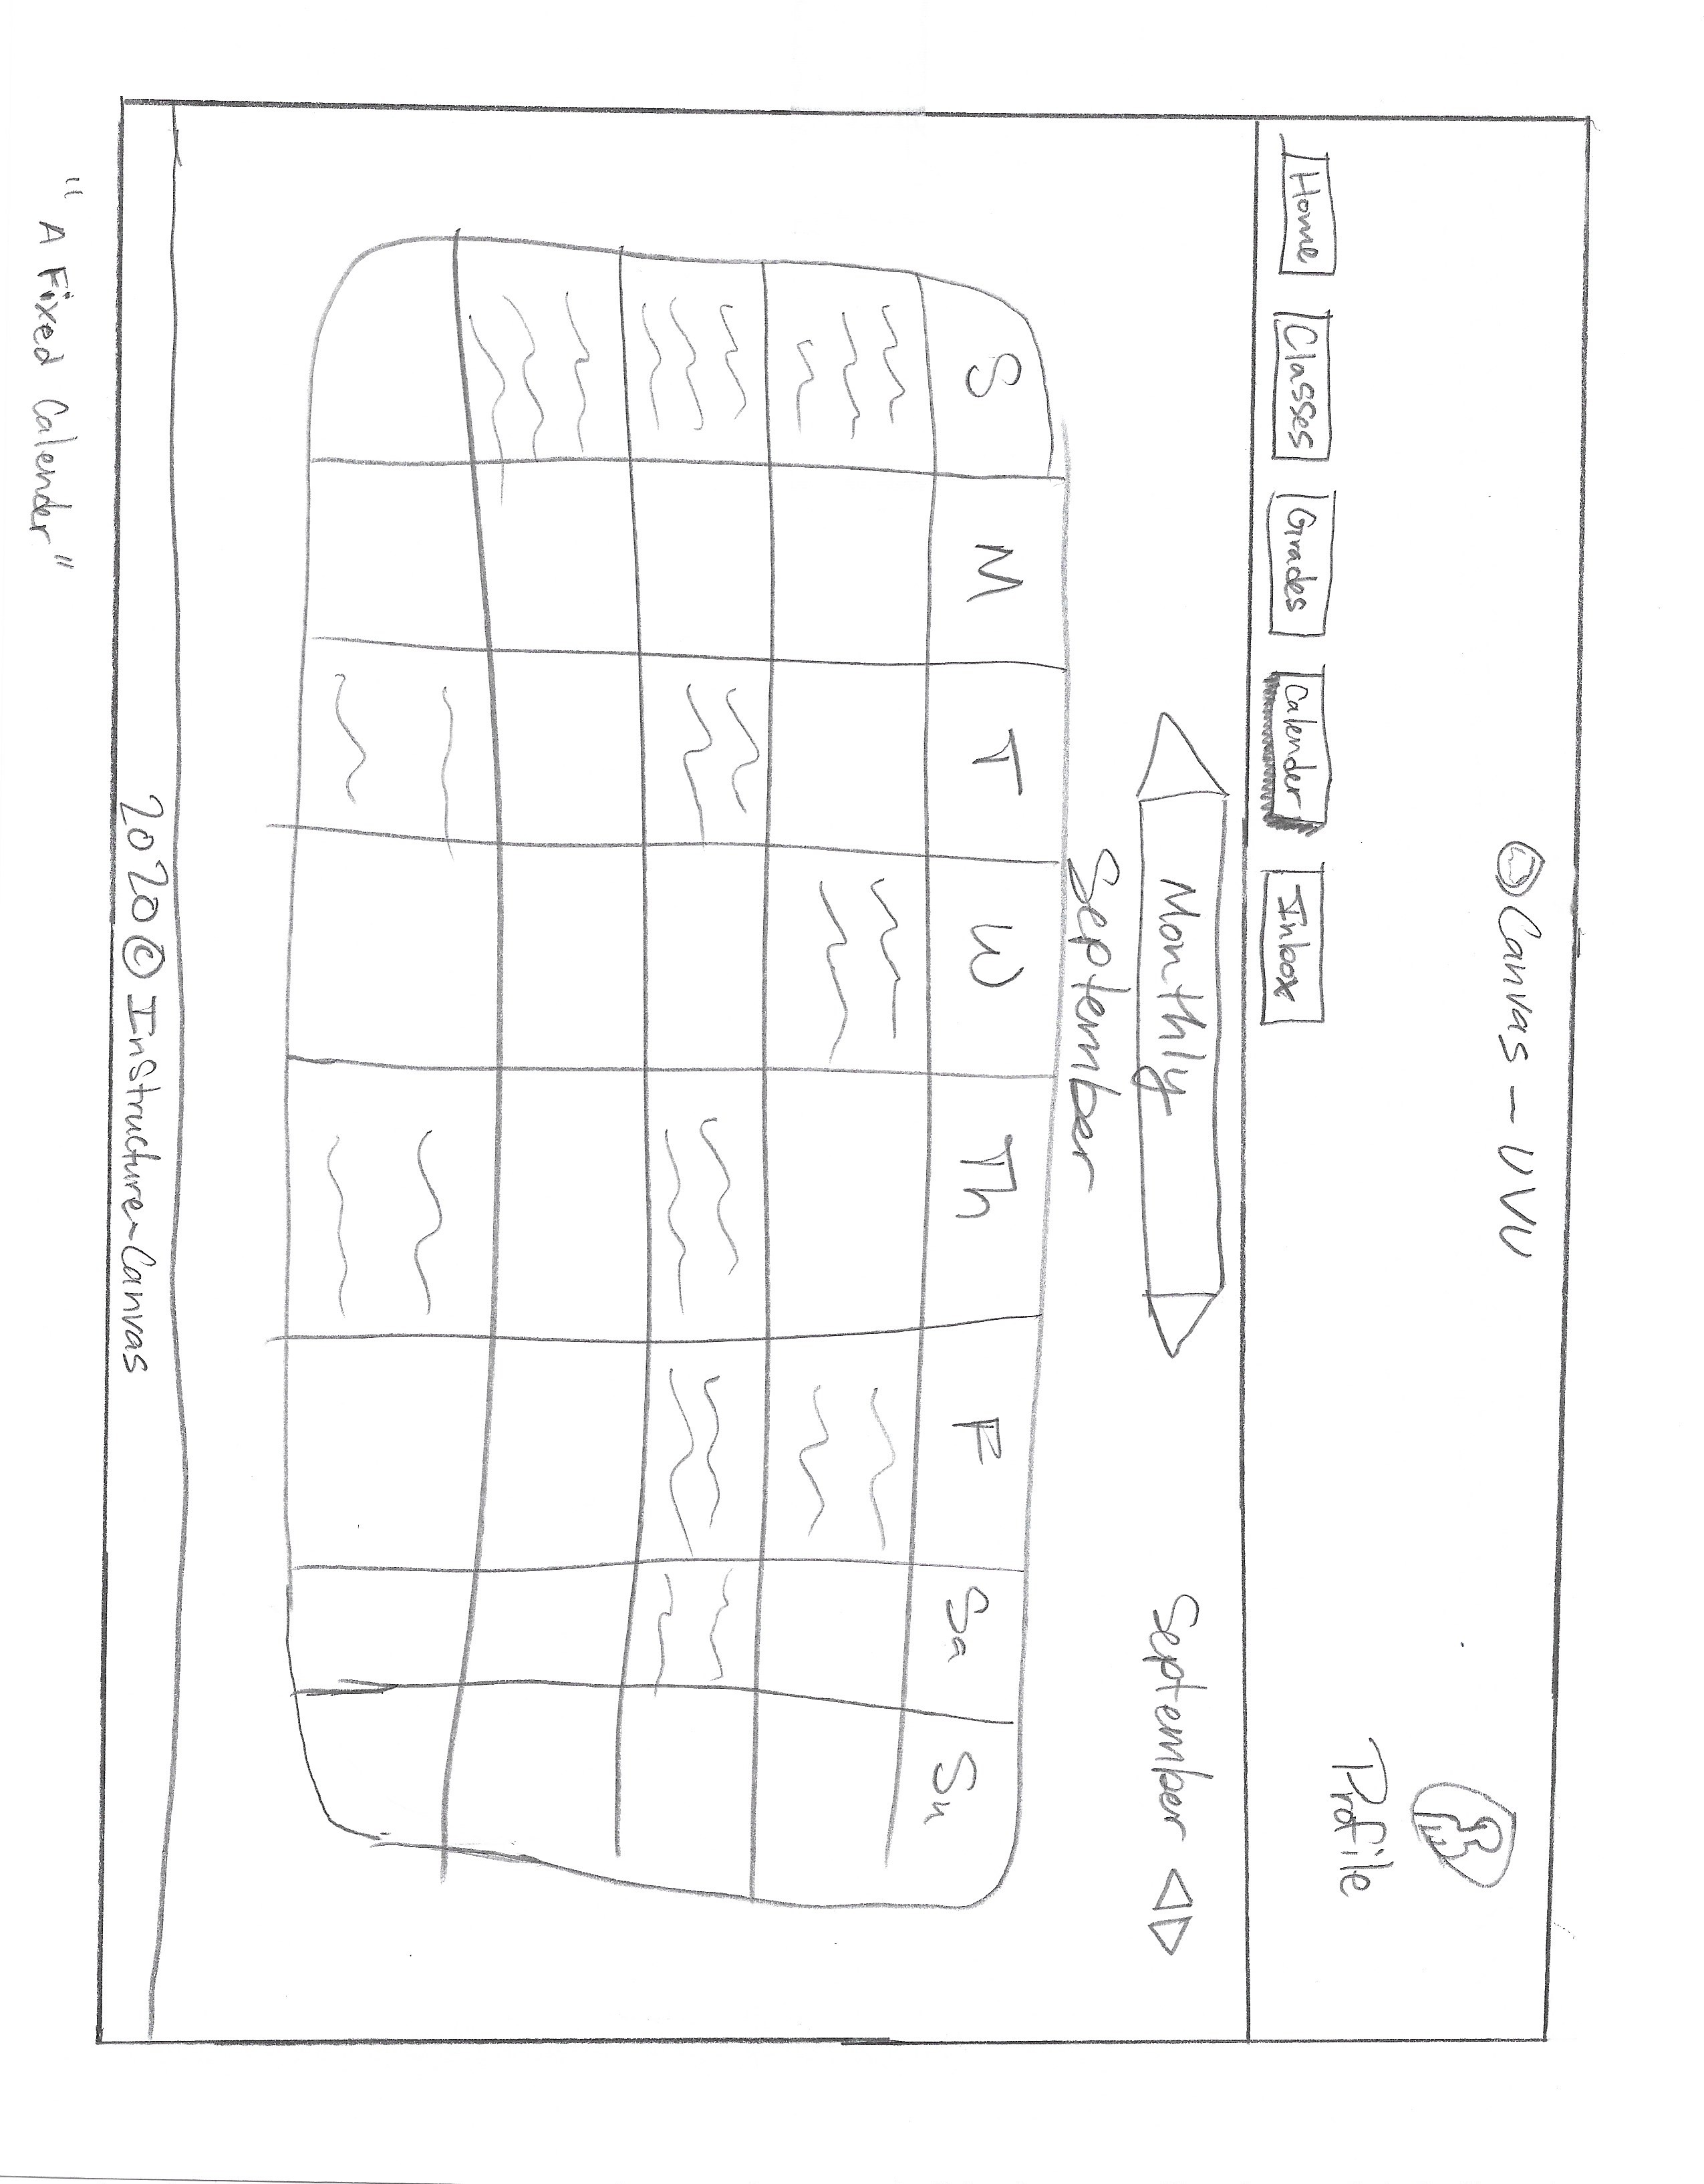 Canvas - UVU
Profile
Home Classes Grades Calender Inbox
Monthly
September
September
S M T W Th F Sa Su
2020 © InStructure-Canvas
"A Fixed Calender"